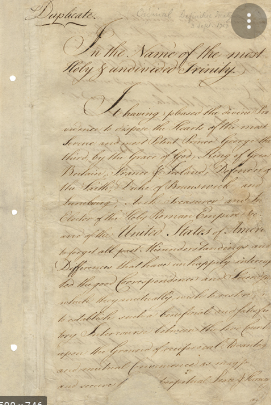 Duplicate.
In the Name of the most
Holy & undivided Trinity.
It having pleased the Divine Pro
vidence to dispose the Hearts of the most
Serene and most Potent Prince George the
third by the Grace of God, King of Great
Britain, France & Ireland, Defender of
the Faith, Duke of Brunswick and
Lunebourg, Arch Treasurer and
Elector of the Holy Roman Empire &c
and of the United States of America
to forget all past Misunderstandings and
Differences that have unhappily interrup
ted the good Correspondence and Friendship
which they mutually wish to restore;
to establish such a beneficial and satisfac
tory Intercourse between the two Countries
upon the Ground of reciprocal Advantages
and mutual Convenience as may
and secure